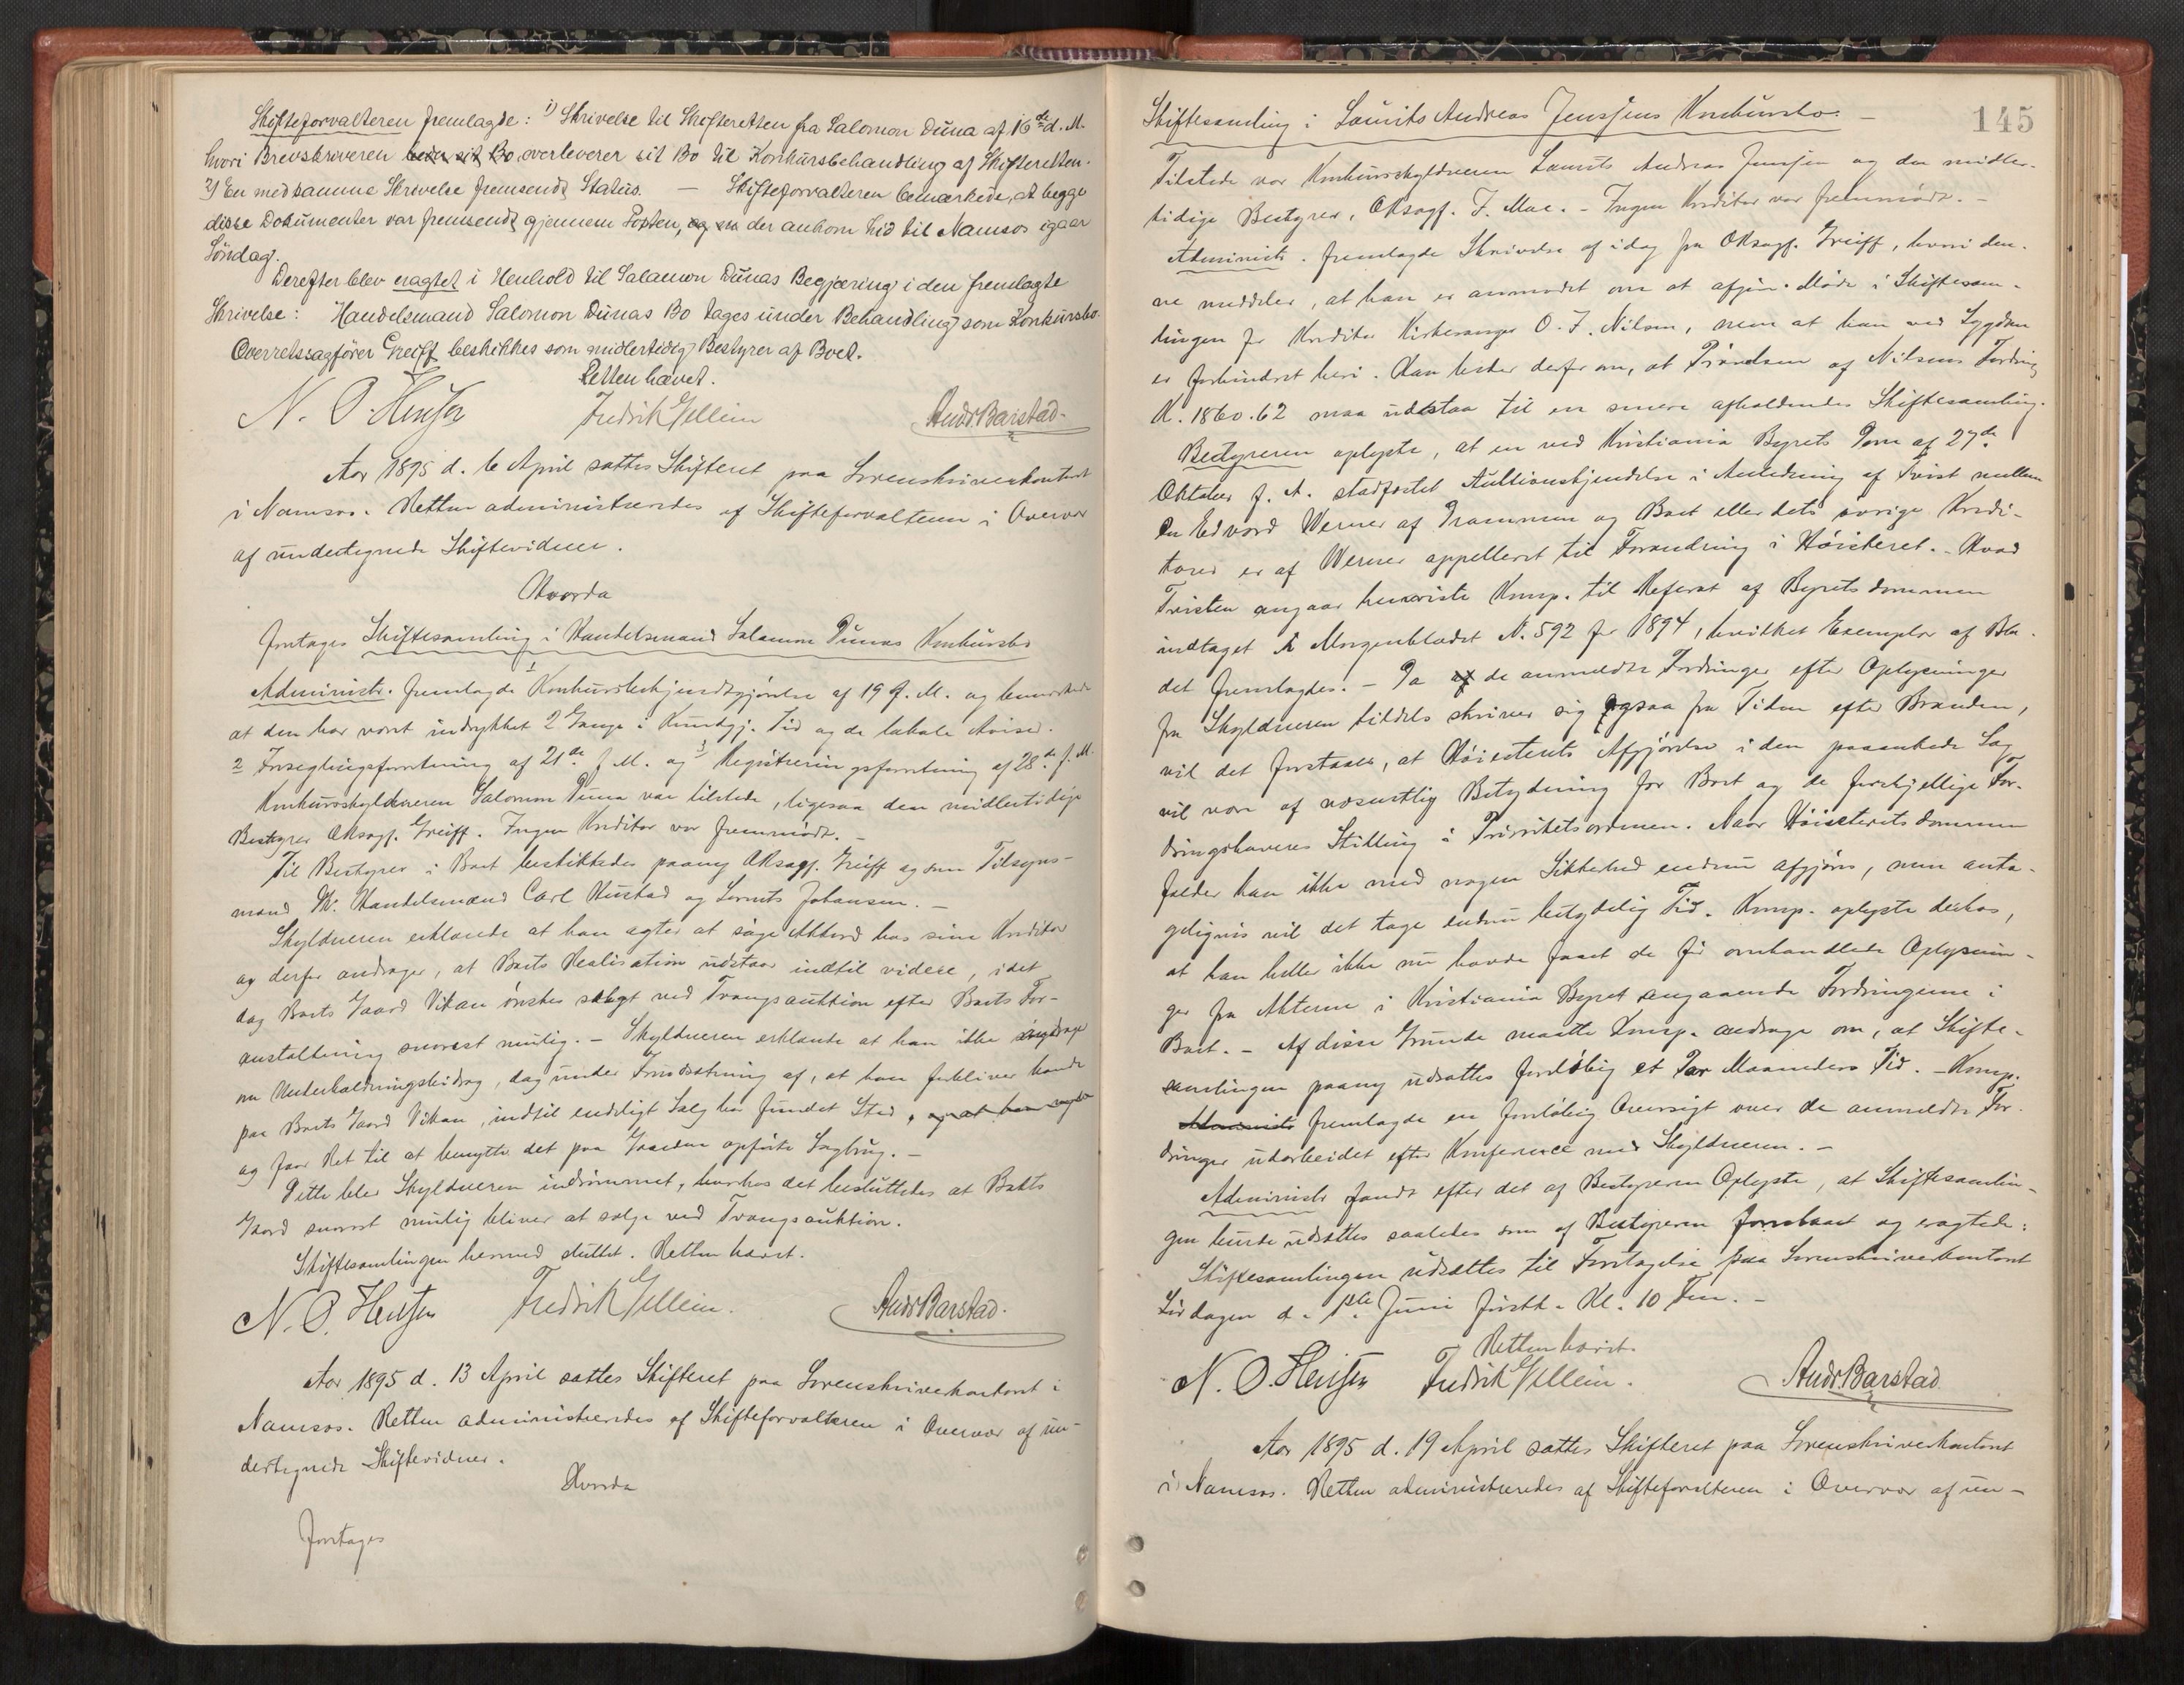 Skifteforvalteren fremlagde: 1) Skrivelse til Skifteretten fra Salomon Duna af 16de d. M.
hvori Brevskriveren beder sit Bo overleverer sit Bo til Konkursbehandling af Skifteretten.
2) En med samme Skrivelse fremsendt Status. — Skifteforvalteren bemærkede, at begge
disse Dokumenter var fremsendt gjennem Posten, og der ankom hid til Namsos igaar
Søndag.
Derefter blev eragtet i Henhold til Salamon Dunas Begjæring i den fremlagte
Skrivelse: Handelsmand Salomon Dunas Bo tages under Behandling som Konkursbo.
Overretssagfører Greiff beskikkes som midlertidig Bestyrer af Boet.
Retten hævet.
N. O. Hensen Fredrik Gellein Andr Barstad
Aar 1895 d. 6 April sattes Skifteret paa Sorenskriverkontoret
i Namsos. Retten administreredes af Skifteforvalteren i Overvær
af undertegnede Skiftevidner.
Hvorda
foretoges Skiftesamling i Handelsmand Salamon Dunas Konkursbo
Administr. fremlagde 1 Konkursbekjendtgjørelse af 19 f. M. og bemærkede
at den har været indrykket 2 Gange i Kundgj. Tid og de lokale Aviser.
2 Forseglingsforretning af 21de f. M. og 3 Registreringsforretning af 28de f. M.
Konkursskyldneren Salomon Duna var tilstede, ligesaa den midlertidige
Bestyrer ORsagf. Greiff. Ingen Kreditor var fremmødt. —
Til Bestyrer i Boet beskikkedes paany ORsagf. Greiff og som Tilsyns-
mænd Hr. Handelsmænd Carl Hustad og Lorents Johansen. —
Skyldneren erklærede at han agter at søge Akkord hos sine Kreditor
og derfor andrager, at Boets Realisation udstaar indtil videre, idet
dog Boets Gaard Vikan ønskes solgt ved Tvangsauktion efter Boets For-
anstaltning snarest mulig. — Skyldneren erklærte at han ikke
nu Underholdningsbidrag, dog under Forudsætning af, at han forbliver
paa Boets Gaard Vikan, indtil endeligt Salg har fundet Sted,
og faar Ret til at benytte det paa Gaarden opførte Sagbrug. —
Dette blev Skyldneren indrømmet, hvorhos det besluttedes at Boets
Gaard snarest mulig bliver at sælge ved Tvangsauktion.
Skiftesamlingen hermed sluttet. Retten hævet.
N. O. Hensen Fredrik Gellein. Andr Barstad.
Aar 1895 d. 13 April sattes Skifteret paa Sorenskriverkontoret i
Namsos. Retten administreredes af Skifteforvalteren i Overvær af un-
dertegnede Skiftevidner.
Hvorda
foretoges
145
Skiftesamling i Laurits Andreas Jenssens Konkursbo. —
Tilstede var Konkursskyldneren Laurits Andreas Jenssen og den midler-
tidige Bestyrer, ORsagf. F. Moe. — Ingen Kreditor var fremmødt. —
Administr. fremlagde Skrivelse af idag fra ORsagf. Greiff, hvori den-
ne meddeler, at han er anmodet om at afgive Møde i Skiftesam-
lingen for Kreditor Kirkesanger O. J. Nilsen, men at han ved Sygdom
er forhindret heri. Han beder derfor om, at Prøvelsen af Nilsens Fordring
K. 1860.62 maa udstaa til en senere afholdendes Skiftesamling.
Bestyreren oplyste, at en ved Kristiania Byrets Dom af 27de
Oktober f. A. stadfæstet Auktionskjendelse i Anledning af Tvist mellem
Edvard Werner af Drammen og Boet eller dets øvrige Kredi-
torer er af Werner appelleret til Forandring i Høiesteret. — Hvad
Tvisten angaar henviste Komp. til Referat af Byretsdommen
indtaget i Morgenbladet N. 592 for 1894, hvilket Exemplar af Bla-
det fremlagdes. — Da de anmeldte Fordringer efter Oplysninger
fra Skyldneren tildels skriver sig ogsaa fra Tiden efter Branden,
vil det forstaaes, at Høiesterets Afgjørelse i den paaankede Sag
vil være af væsentlig Betydning for Boet og de forskjellige For-
dringshaveres Stilling i Prioritetsordenen. Naar Høiesteretsdommen
falder kan ikke med nogen Sikkerhed endnu afgjøres, men anta-
geligvis vil det tage endnu betydelig Tid. Komp. oplyste derhos,
at han heller ikke nu havde faaet de før omhandlede Oplysnin-
ger fra Akterne i Kristiania Byret angaaende Fordringerne i
Boet. — Af disse Grunde maatte Komp. andrage om, at Skifte-
samlingen paany udsættes foreløbig et Par Maaneders Tid. — Komp.
Administr fremlagde en foreløbig Oversigt over de anmeldte For-
dringer udarbeidet efter Konference med Skyldneren. —
Administr fandt efter det af Bestyreren Oplyste, at Skiftesamlin-
gen burde udsættes saaledes som af Bestyreren foreslaaet og eragtede:
Skiftesamlingen udsættes til Foretagelse paa Sorenskriverkontoret
Lørdagen d. 1ste Juni førstk. Kl. 10 Fm. —
Retten hævet.
N. O. Hensen Fredrik Gellein. Andr Barstad
Aar 1895 d. 19 April sattes Skifteret paa Sorenskriverkontoret
i Namsos. Retten administreredes af Skifteforvalteren i Overvær af un-